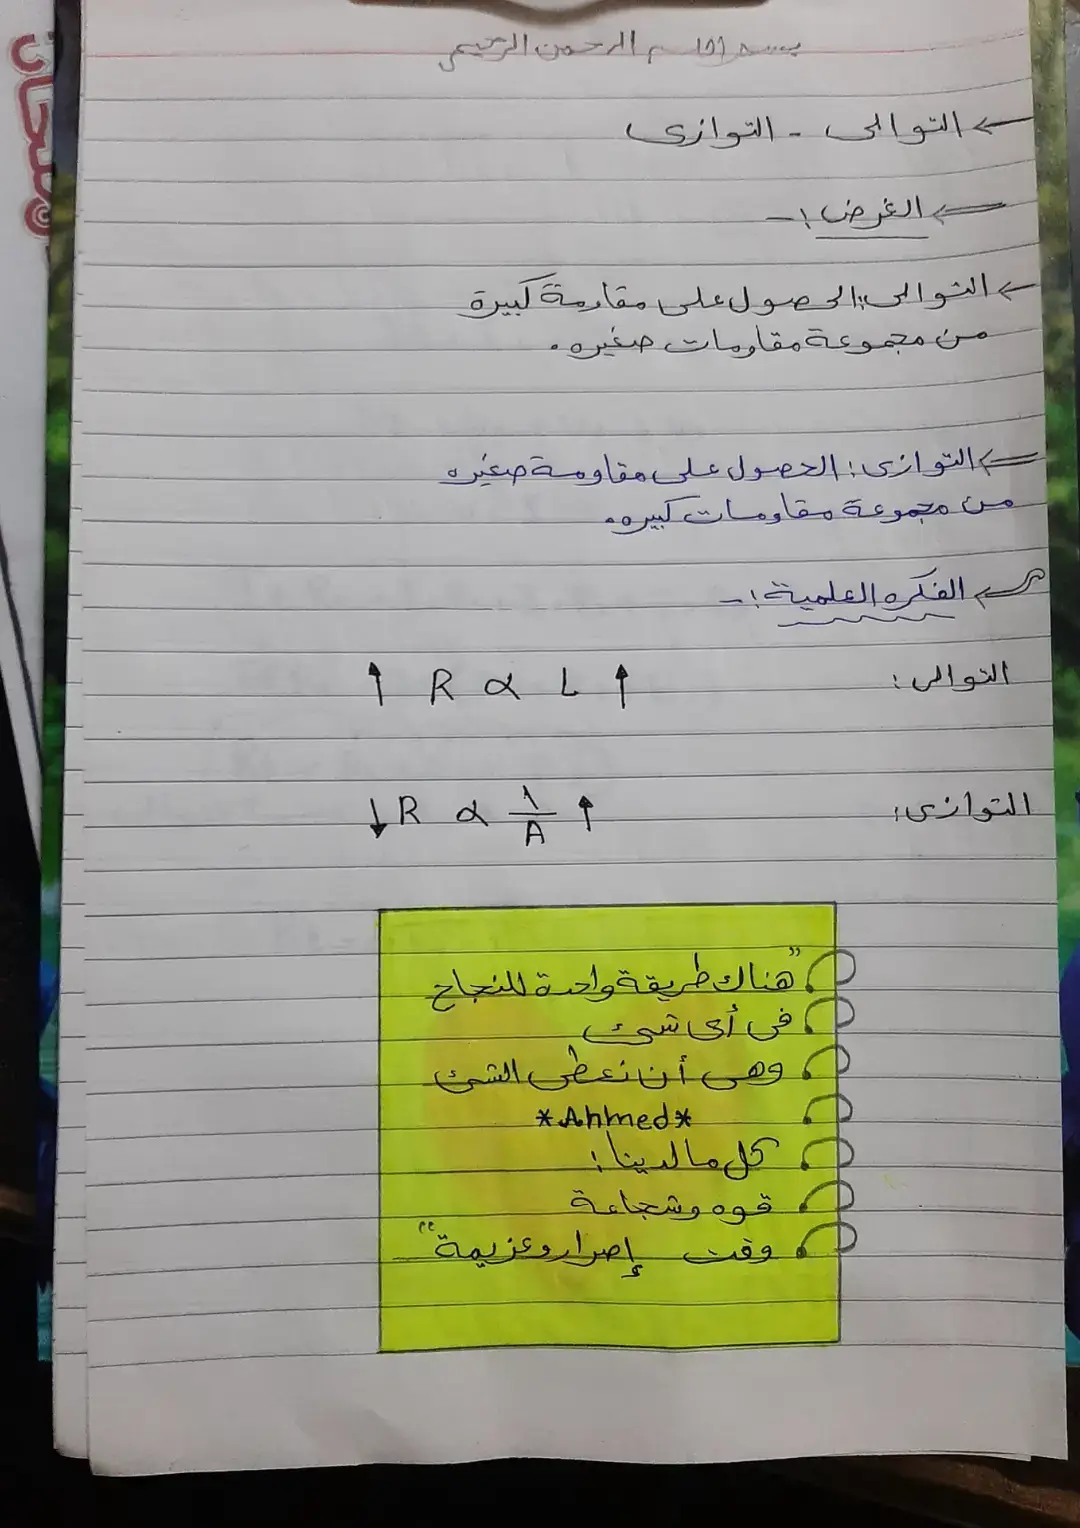 بسم الله الرحمن الرحيم
← التوالى - التوازى
← الغرض :-
← التوالى: الحصول على مقاومة كبيرة
من مجموعة مقاومات صغيره.
← التوازى: الحصول على مقاومة صغيره
من مجموعة مقاومات كبيره.
← الفكره العلمية :-
التوالى: ↑ R α L ↑
التوازى: ↓ R α 1/A ↑
"هناك طريقة واحدة للنجاح
فى أى شئ
وهى أن نعطى الشئ
*Ahmed*
كل ما لدينا:
قوه وشجاعة
وقت إصرار وعزيمة"